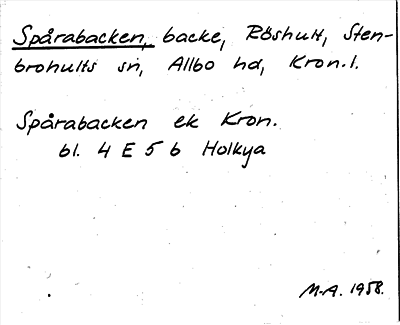 Spårabacken, backe, Röshult, Sten-
brohults sn, Allbo hd, Kron.l.
Spårabacken ek Kron.
bl. 4 E 5 b Holkya
M-A. 1958.